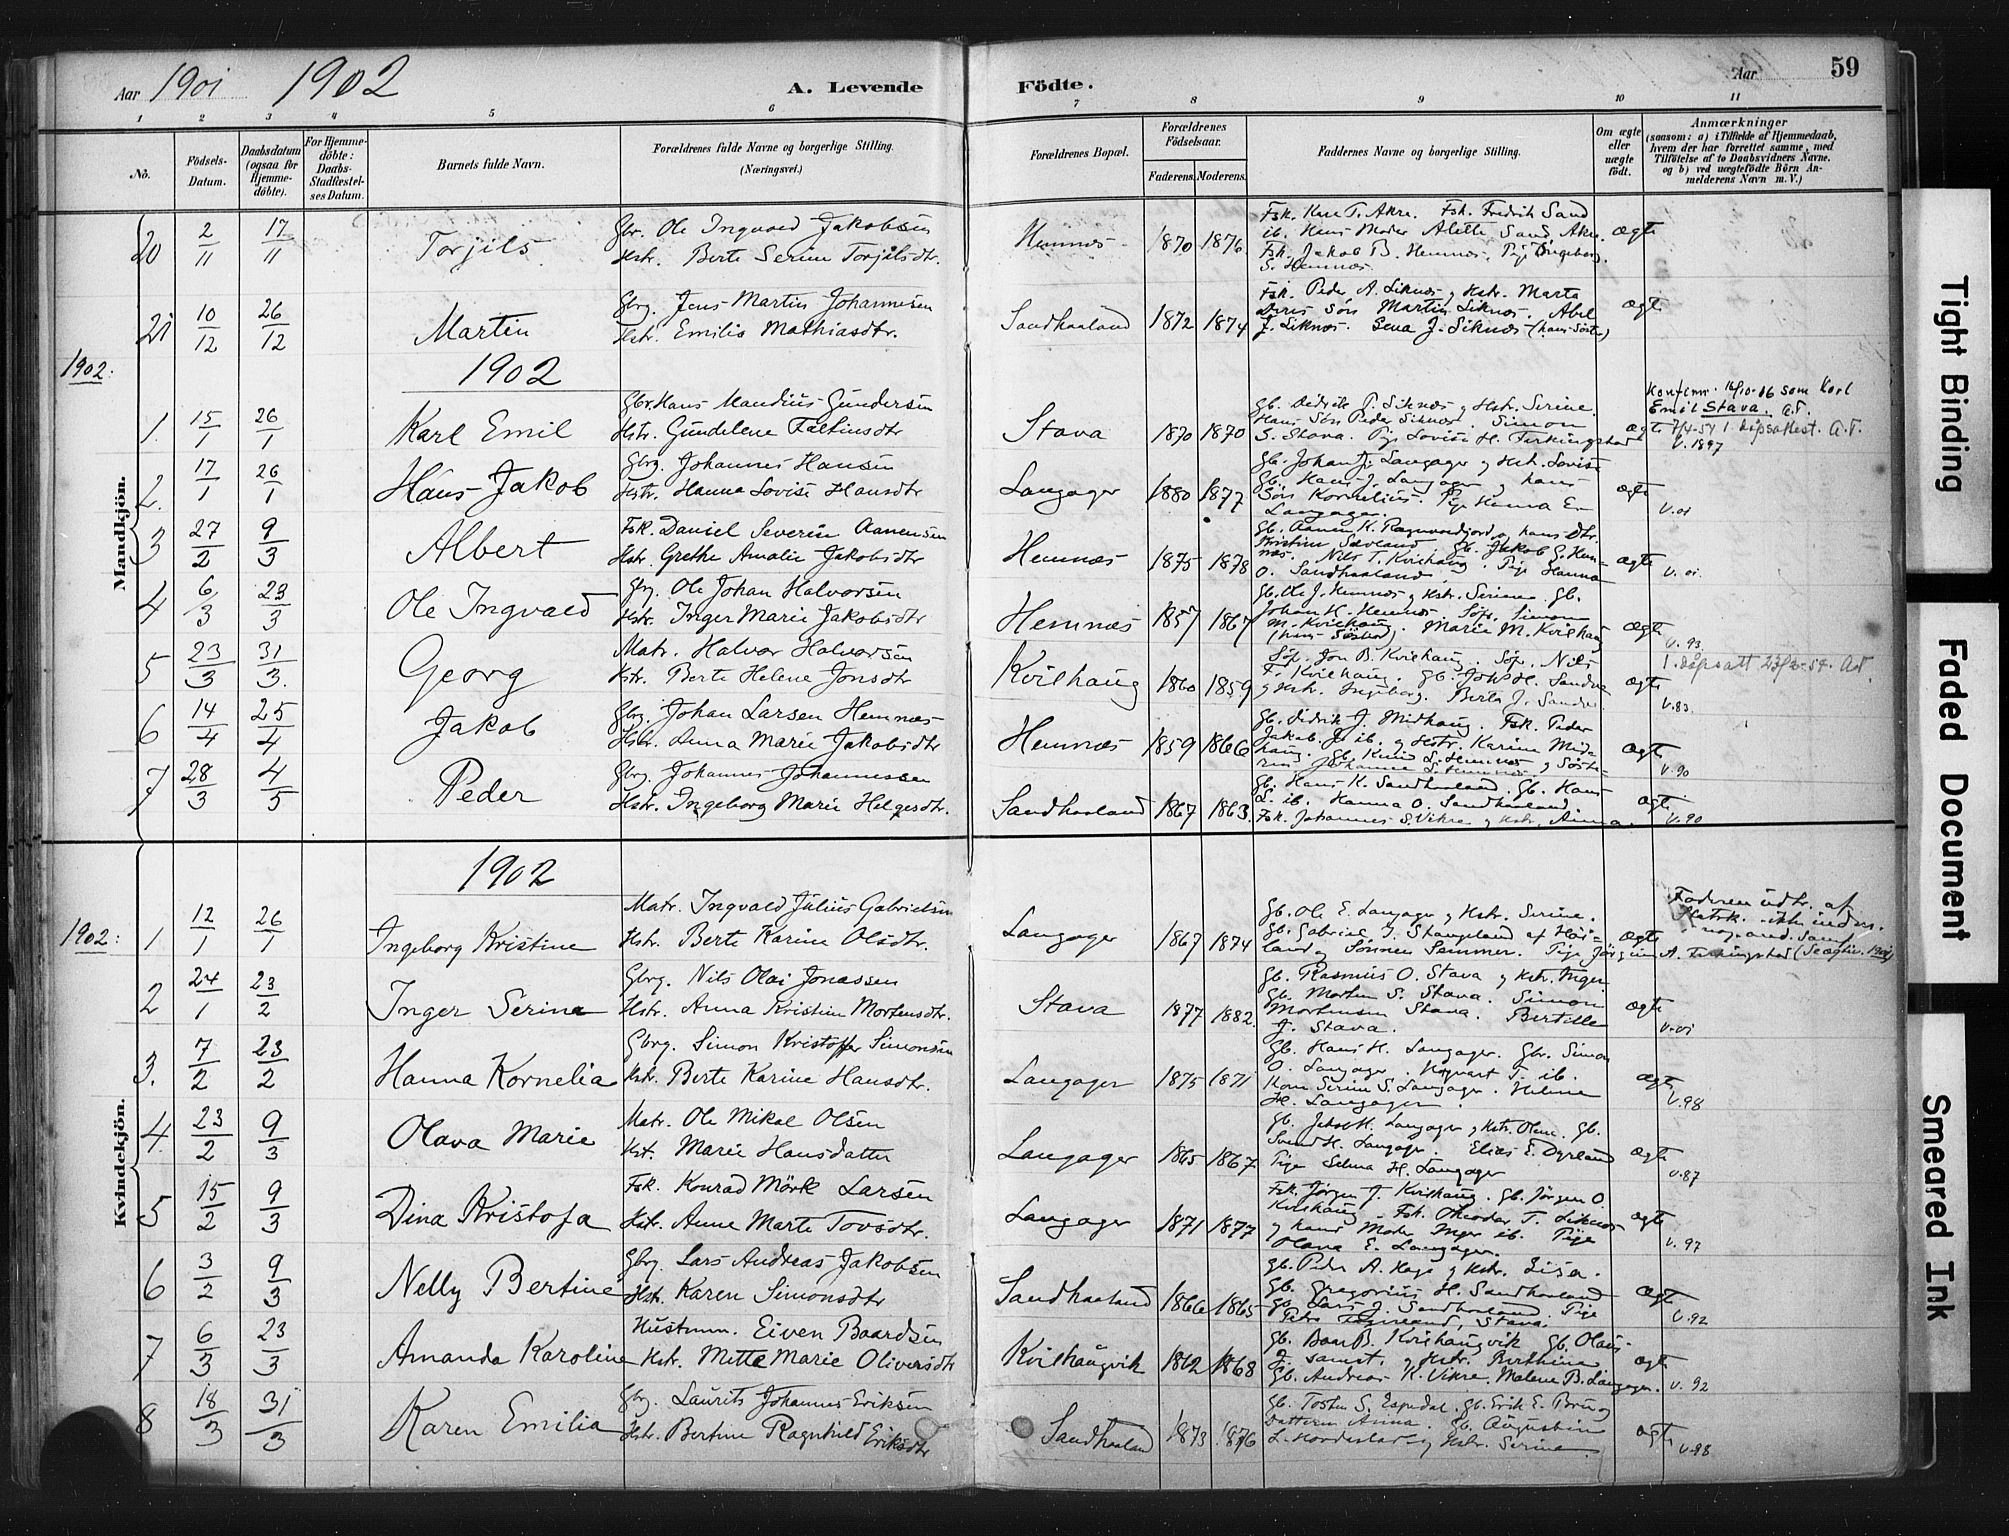 Aar 1901 1902 A. Levende Födte. Aar 59
1 2 3 4 5 6 7 8 9 10 11
No.
Födsels-Datum.
Daabsdatum (ogsaa for Hjemme-döbte).
For Hjemme-döbte: Daabs-Stadfæstel-ses Datum.
Barnets fulde Navn.
Forældrenes fulde Navne og borgerlige Stilling. (Næringsvei.)
Forældrenes Bopæl.
Forældrenes Födselsaar.
Faderens. Moderens.
Faddernes Navne og borgerlige Stilling.
Om ægte eller uægte födt.
Anmærkninger
(saasom: a) i Tilfælde af Hjemmedaab, hvem der har forrettet samme, med Tilföielse af to Daabsvidners Navne. og b) ved uægtefödte Börn An-melderens Navn m. V.)
Mandkjön.
20 2/11 17/11 Torjils
Gbr. Ole Ingvald Jakobsen
Hstr. Berte Serine Torjilsdtr.
Hemnes 1870 1876
Fsk. Kare T. Akre. Fsk. Fredrik Sand
ib. Hans Moder Alette Sand Akre.
Fsk. Jakob B. Hemnes. Pige Ingeborg
S. Hemnes.
ægte
21 10/12 26/12 Martin
Gbrg. Jens Martin Johannesen
Hstr. Emilie Mathiasdtr.
Sandhaaland 1872 1874
Fsk. Peder A. Liknes og Hstr. Marta
Deres Søn Martin Liknes. Abel
J. Liknes. Sena J. Liknes (hans Søster)
ægte
1902.
1902
1. 15/1 26/1 Karl Emil
Gbr. Hans Mandius Gundersen
Hstr. Gundelene Faltinsdtr
Stava 1870 1870
Gb. Didrik P. Liknes og Hstr. Serine.
Hans Søn Peder Liknes. Simon
S. Stava. Pige Lovise H. Ferkingstad
ægte
Konfirm. 14/10-06 som Karl
Emil Stava. A.T.
7/4-54 1 dåpsattest. A.T.
V. 1897
2. 17/1 26/1 Hans Jakob
Gbrg. Johannes Hansen
Hstr. Hanna Lovise Hansdtr
Langager 1880 1877
Gb. Johan J. Langager og Hst. Lovise
Gb. Hans J. Langager og hans
Søn Kornelius. Pige Hanna E.
Langager.
ægte V. 01
3 27/2 9/3 Albert
Fsk. Daniel Severin Aanensen
Hstr. Grethe Amalie Jakobsdtr
Hemnæs 1875 1878
Gb. Aanen K. Ragnvandjord og hans Dtr.
Kristine Sævland. Gb. Jakob G. Hem-
næs. Nils T. Kvilhaug. Pige Hanna
O. Sandhaaland.
ægte V. 01.
4 6/3 23/3 Ole Ingvald
Gbrg. Ole Johan Halvorsen
Hstr. Inger Marie Jakobsdtr
Hemnæs 1857 1867
Gb. Ole J. Hemnæs og Hstr. Serine. Gb.
Johan H. Hemnæs. Søfr. Simon
M. Kvilhaug. Marie M. Kvilhaug
ægte V. 93
5 23/3 31/3. Georg
Matr. Halvor Halvorsen
Hstr. Berte Helene Jonsdtr
Kvilhaug 1860 1859
Søf. Jon B. Kvilhaug. Søf. Nils
F. Kvilhaug. Gb. John H. Sandve
og Hstr. Ingeborg. Berta J. Sandve
ægte
1. dåpsatt 23/2-54. A.T.
V. 83.
6 14/4 25/4 Jakob
Gbrg. Johan Larsen Hemnæs
Hstr. Anna Marie Jakobsdtr
Hemnæs 1859 1866
Gb. Didrik J. Midhaug. Fsk. Peder
Jakob. Jr ib. og Hstr. Karine Mid-
haug. Gb. Knud L. Hemnæs og Søste-
ren Johanne L. Hemnæs
ægte V. 90
7 28/3 4/5 Peder
Gbrg. Johannes Johannessen
Hstr. Ingeborg Marie Helgesdtr.
Sandhaaland 1867 1863.
Gb. Hans K. Sandhaaland. Gb. Hans
L. ib. Hanna O. Sandhaaland.
Fsk. Johannes S. Vikre og Hstr. Anna.
ægte V. 90
Kvindekjön.
1902
1902:
1 12/1 26/1 Ingeborg Kristine
Matr. Ingvald Julius Gabrielsen
Hstr. Berte Karine Olsdtr.
Langager 1867 1874
Gb. Ole E. Langager og Hstr. Serine.
Gb. Gabriel J. Stangeland af Høi-
land og Sønnen Semmer. Pige Jørgine A. Ferkingstad
ægte
Faderen udtr. af
Statsk. ikke inden.
i nog. and. Samf.
2 24/1 23/2 Inger Serine
Gbrg. Nils Olai Jonassen
Hstr. Anna Kristine Mortensdtr.
Stava 1877 1882.
Gb. Rasmus O. Stava og Hstr. Inger
Gb. Morten S. Stava. Simon
Mortensen Stava. Bertille
J. Stava.
ægte V. 01
3. 7/2 23/2 Hanna Kornelia
Gbrg. Simon Kristoffer Simonsen
Hstr. Berte Karine Hansdtr.
Langager 1875 1871
Gb. Hans H. Langager. Gbr. Simon
O. Langager. Hagvart T. ib.
Kone Serine S. Langager. Helene
H. Langager.
ægte V. 98
4. 23/2 9/3 Olava Marie
Matr. Ole Mikal Olsen
Hst. Marie Hansdatter
Langager 1865 1867
Gb. Jakob H. Langager og Hstr. Oline. Gb.
Svend H. Langager. Elias E. Dyrland
Pige Selma H. Langager
ægte V. 87
5 15/2 9/3 Dina Kristofa
Fsk. Konrad Mörk Larsen
Hstr. Anne Marte Tovsdtr.
Langager 1871 1877
Fsk. Jørgen J. Kvilhaug. Gb. Jørgen O.
Kvilhaug. Fsk. Theodor T. Liknes
og hans Moder Inger ib. Pige
Olava E. Langager.
ægte V. 97
6 3/2 9/3 Nelly Bertine
Gbrg. Lars Andreas Jakobsen
Hstr. Karen Simonsdtr
Sandhaaland 1866 1865
Gb. Peder A. Hage og Hstr. Lisa.
Gb. Gregorius H. Sandhaaland
Gb. Lars J. Sandhaaland. Pige
Petra Stava.
ægte V. 92
7 6/3 23/3 Amanda Karoline
Husmm. Eiven Baardsen
Hstr. Mette Marie Oliversdtr
Kvilhaugvik 1862 1868
Gb. Baar B. Kvilhaugvik Gb. Olaus
J. samst. og Hstr. Berthine
Gb. Andreas K. Vikre. Malene B. Langager.
ægte V. 92
8 18/3 31/3 Karen Emilia
Gbrg. Laurits Johannes Eriksen
Hstr. Bertine Ragnhild Eriksdtr
Sandhaaland 1873 1876
Gb. Tosten S. Espedal. Gb. Erik E. Bru og
Datteren Anna. Gb. Augustin
L. Hordeslad og Hstr. Serine
ægte V. 98
Tight Binding
Faded Document
Smeared Ink